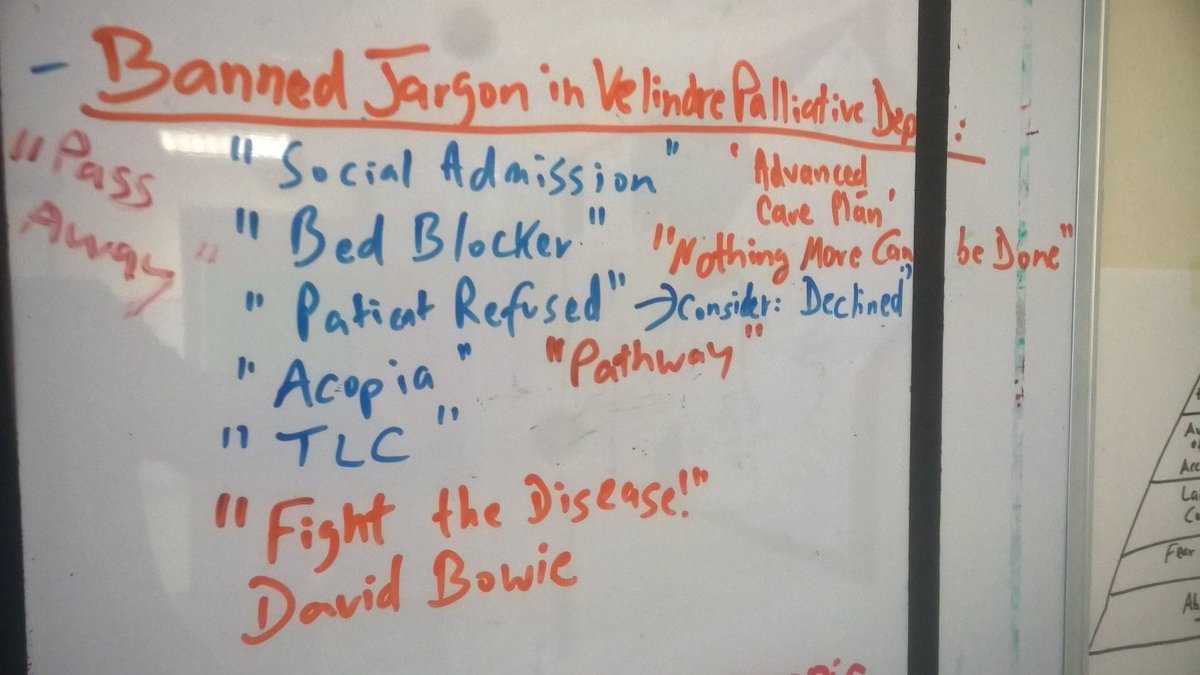 - Banned Jargon in Velindre Palliative Dep :
"Pass
Away"
"Social Admission"
'Advanced
Care Plan'
"Bed Blocker"
"Nothing More Can be Done"
"Patient Refused" → Consider: Declined'
"Acopia"
"Pathway"
"TLC"
"Fight the Disease!"
David Bowie
Fear